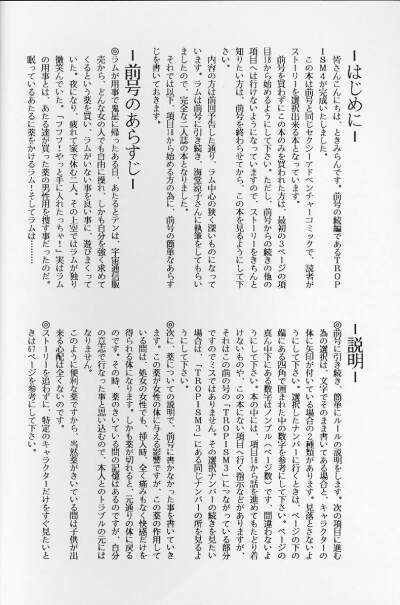 ーはじめにー
皆さんこんにちは、ときみらんです。前号の続編であるTROP
ISM4が完成いたしました。
この本は前号と同じセクシーアドベンチャーコミックで、読者が
ストーリーを選択出来る本となっています。
前号を買わずにこの本のみを買われた方は、最初の3ページの項
目18から始めるようにして下さい。ただし、前号からの続きの他の
項目へは行けないようになっていますので、ストーリーをきちんと
知りたい方は、前号を終わらせてから、この本を見るようにして下
さい。
内容の方は前回予告した通り、ラム中心の狭く深いものになって
います。ラムは前号に引き続き、海覚涼子さんに執筆をしてもらい
ましたので、完全な二人誌の本となりました。
それでは以下、項目18から始める方の為に、前号の簡単なあらす
じを書いておきます。
ー前号のあらすじー
◎ラムが用事で鬼星に帰ったある日、あたるとテンは、宇宙通信販
売から、どんな女の人でも自由に操れ、しかも自分を強く求めて
くるという薬を買い、ラムがいない事を良い事に、遊びまくって
いた。夜になり、疲れて家で休む二人。その上空ではラムが独り
微笑んでいた。「フフフ！やっと手に入れたっちゃ！」実はラム
の用事とは、あたる達が買った薬の男性用を捜す事だったのだ。
眠っているあたるに薬をかけるラム！そしてラムは………
ー説明ー
◎前号に引き続き、簡単にルールの説明をします。次の項目に進む
為の選択は、文字でそのまま書いてある場合と、キャラクターの
体に矢印が付いている場合の2種類があります。見落とさないよ
うにして下さい。選択したナンバーに行くときは、ページの下の
端にある四角で囲まれた中の数字を参考にして下さい。ページの
真ん中下にある数字はノンブル（ページ数）です、間違わないよ
うにして下さい。本の中には、項目18から話を進めてもたどり着
けないものや、この本にない項目へ行く指示などがありますが、
それはこの前の号の「TROPISM3」につながっている部分
ですのでミスではありません。その選択ナンバーの続きを見たい
場合は、「TROPISM3」にある同じナンバーの所を見るよ
うにして下さい。
◎次に、薬についての説明で、前号に書かなかった事を書いていき
ます。この薬が女性の体に与える影響ですが、この薬の作用して
いる間は、処女の女性でも、挿入時、全く痛みもなく快感だけを
得られる体になります。しかも薬が切れると、元通りの体に戻る
のです。その時、薬のきいている間の記憶はあるのですが、自分
の意志で行なった事と思い込むので、本人とのトラブルの元には
なりません。
このように便利な薬ですから、当然薬がきいている間は子供が出
来る心配は全くないのです。
◎ストーリーを追わずに、特定のキャラクターだけをすぐ見たいと
きは67ページを参考にして下さい。